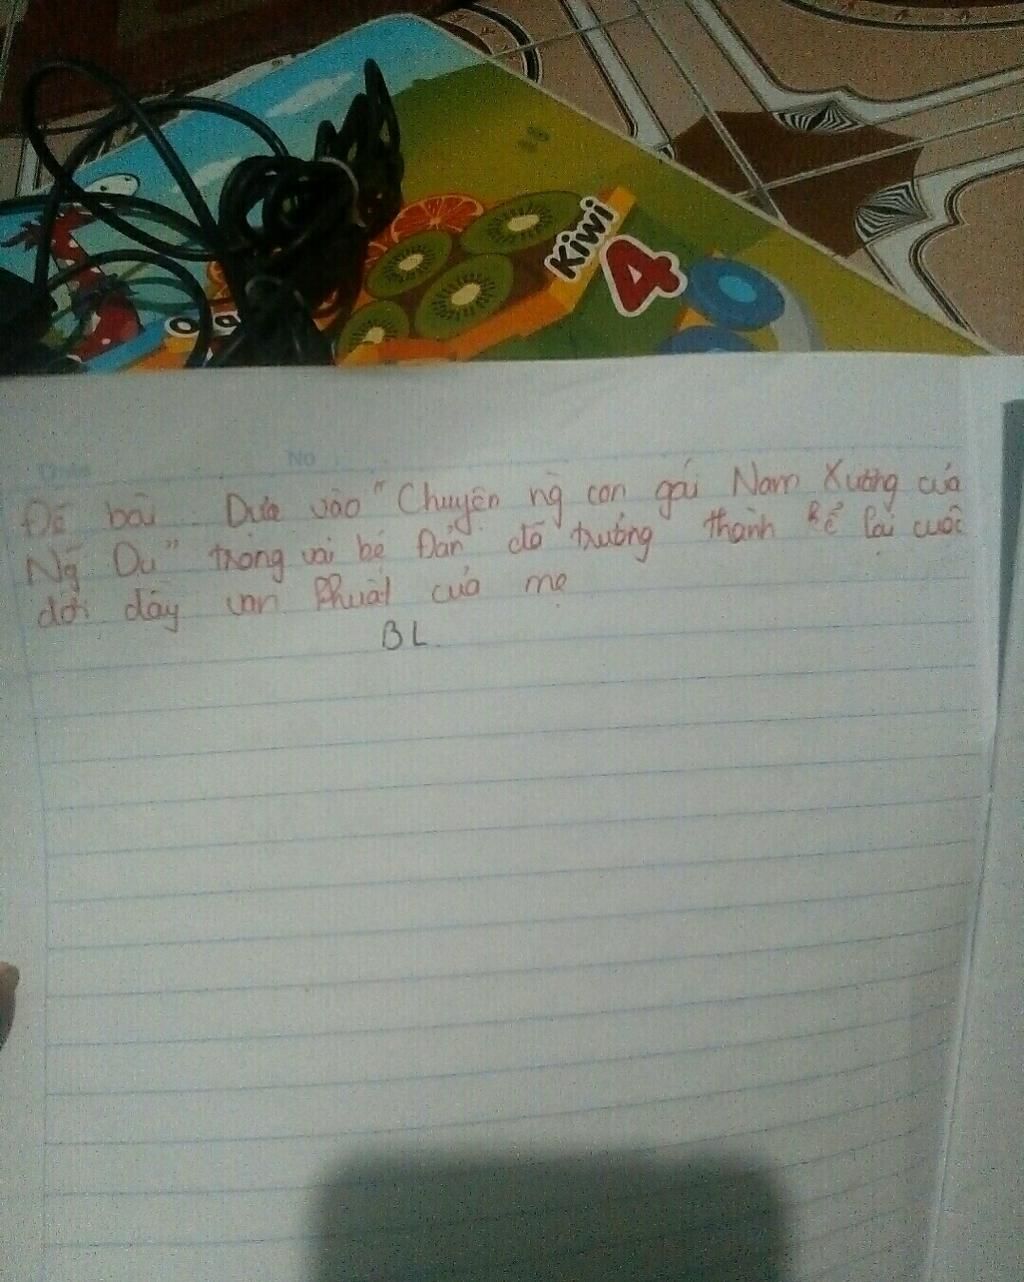 Kiwi
4
No
Đề bài Dựa vào "Chuyện ng con gái Nam Xương của
Ng Dữ" trong vai bé Đản đã trưởng thành kể lại cuộc
đời đầy oan khuất của mẹ
BL